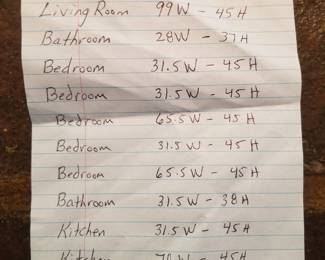 Living Room 99W - 45H
Bathroom 28W - 37H
Bedroom 31.5W - 45H
Bedroom 31.5W - 45H
Bedroom 65.5W - 45H
Bedroom 31.5W - 45H
Bedroom 65.5W - 45H
Bathroom 31.5W - 38H
Kitchen 31.5W - 45H
Kitchen 70W - 45H